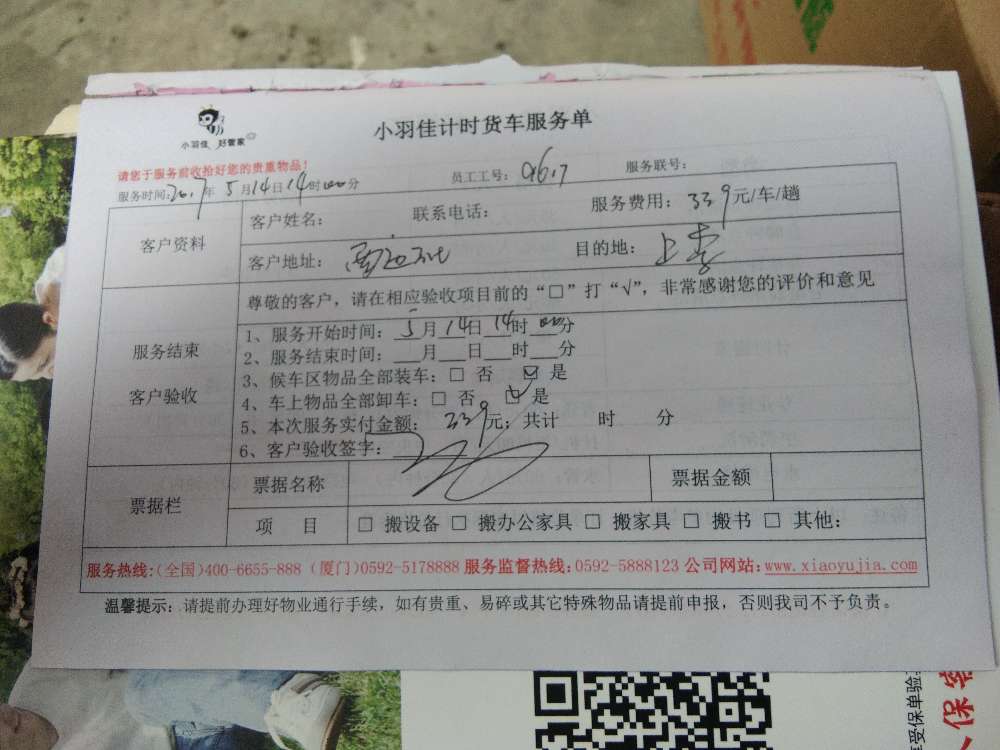 小羽佳 好管家
小羽佳计时货车服务单
请您于服务前收拾好您的贵重物品!
服务时间: 2019年 5月14日14时00分 员工工号: 服务联号:
客户资料
客户姓名: 联系电话: 服务费用: 339元/车/趟
客户地址: 目的地: 上李
服务结束
客户验收
尊敬的客户，请在相应验收项目前的“□”打“√”，非常感谢您的评价和意见
1、服务开始时间: 5月14日14时00分
2、服务结束时间: ___月___日___时___分
3、候车区物品全部装车: □ 否 ☑ 是
4、车上物品全部卸车: □ 否 ☑ 是
5、本次服务实付金额: 339元; 共计 时 分
6、客户验收签字:
票据栏
票据名称 票据金额
项 目 □ 搬设备 □ 搬办公家具 □ 搬家具 □ 搬书 □ 其他:
服务热线:(全国)400-6655-888 (厦门)0592-5178888 服务监督热线:0592-5888123 公司网站:www.xiaoyujia.com
温馨提示: 请提前办理好物业通行手续，如有贵重、易碎或其它特殊物品请提前申报，否则我司不予负责。
受保单验
人保